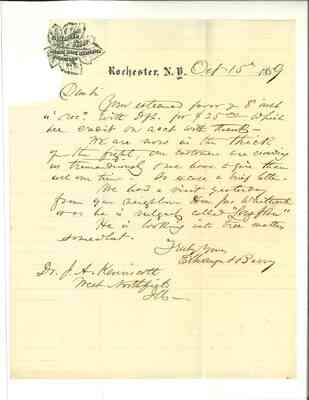 Rochester, N.Y. Oct 15th 1869
Dear Sir
Your esteemed favor of 8th inst
is "rec'd" with Dft. for $25.00 which
we credit on acct with thanks—
We are now in the thick
of the fight, our customers are crowding
us tremendously & we have to give them
all our time— So excuse a brief letter.
We had a visit yesterday
from your neighbor Hon Jno Wentworth
or as he is vulgarly called "Long John"
He is looking into tree matters
somewhat.
Truly Yours
Ellwanger & Barry
Dr. J. A. Kennicott
West Northfield
Ills—